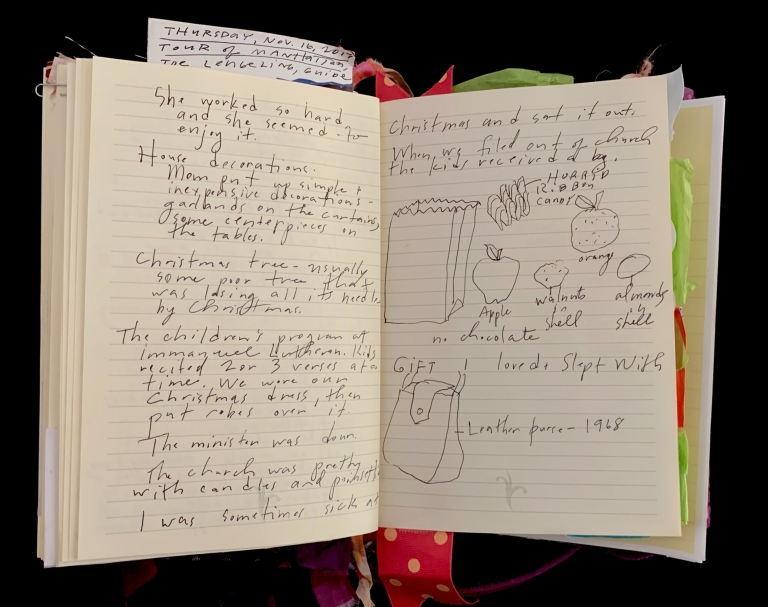 THURSDAY, NOV. 16, 2017
TOUR OF MANHATTAN,
JOE LENGELING, GUIDE
She worked so hard
and she seemed to
enjoy it.
House decorations.
Mom put up simple +
inexpensive decorations -
garlands on the curtains,
some centerpieces on
the tables.
Christmas tree - usually
some poor tree that
was losing all its needles
by Christmas.
The children's program at
Immanuel Lutheran. Kids
recited 2 or 3 verses at a
time. We wore our
Christmas dress, then
put robes over it.
The minister was dour.
The church was pretty
with candles and
I was sometimes sick at
Christmas and sat it out.
When we filed out of church
the kids received a bag.
HORRID
RIBBON
CANDY
orange
Apple
walnuts
in
shell
almonds
in
shell
no chocolate
GIFT I loved + Slept With
Leather purse - 1968